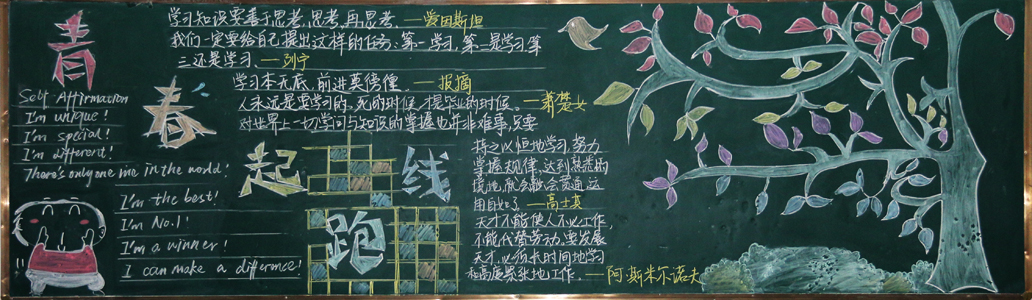 青
春
Self Affirmation
I'm unique!
I'm special!
I'm different!
There's only one me in the world!
I'm the best!
I'm No.1!
I'm a winner!
I can make a difference!
学习知识要善于思考,思考,再思考.—爱因斯坦
我们一定要给自己提出这样的任务:第一学习,第二是学习,第
三还是学习.—列宁
学习本无底,前进莫徬徨.—报摘
人永远是要学习的,死的时候,才是毕业的时候。—萧楚女
对世界上一切学问与知识的掌握也并非难事,只要
持之以恒地学习,努力
掌握规律,达到熟悉的
境地,就会融会贯通,运
用自如了—高士其
天才不能使人不必工作,
不能代替劳动,要发展
天才,必须长时间地学习
和高度紧张地工作.—阿.斯米尔诺夫
起跑线